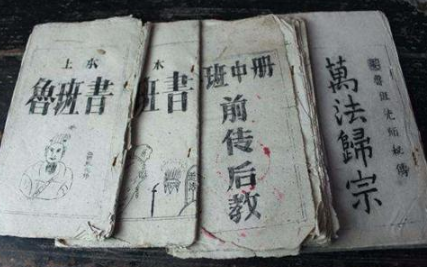 上水
魯班書
木
班書
班中册
前传后教
萬法歸宗